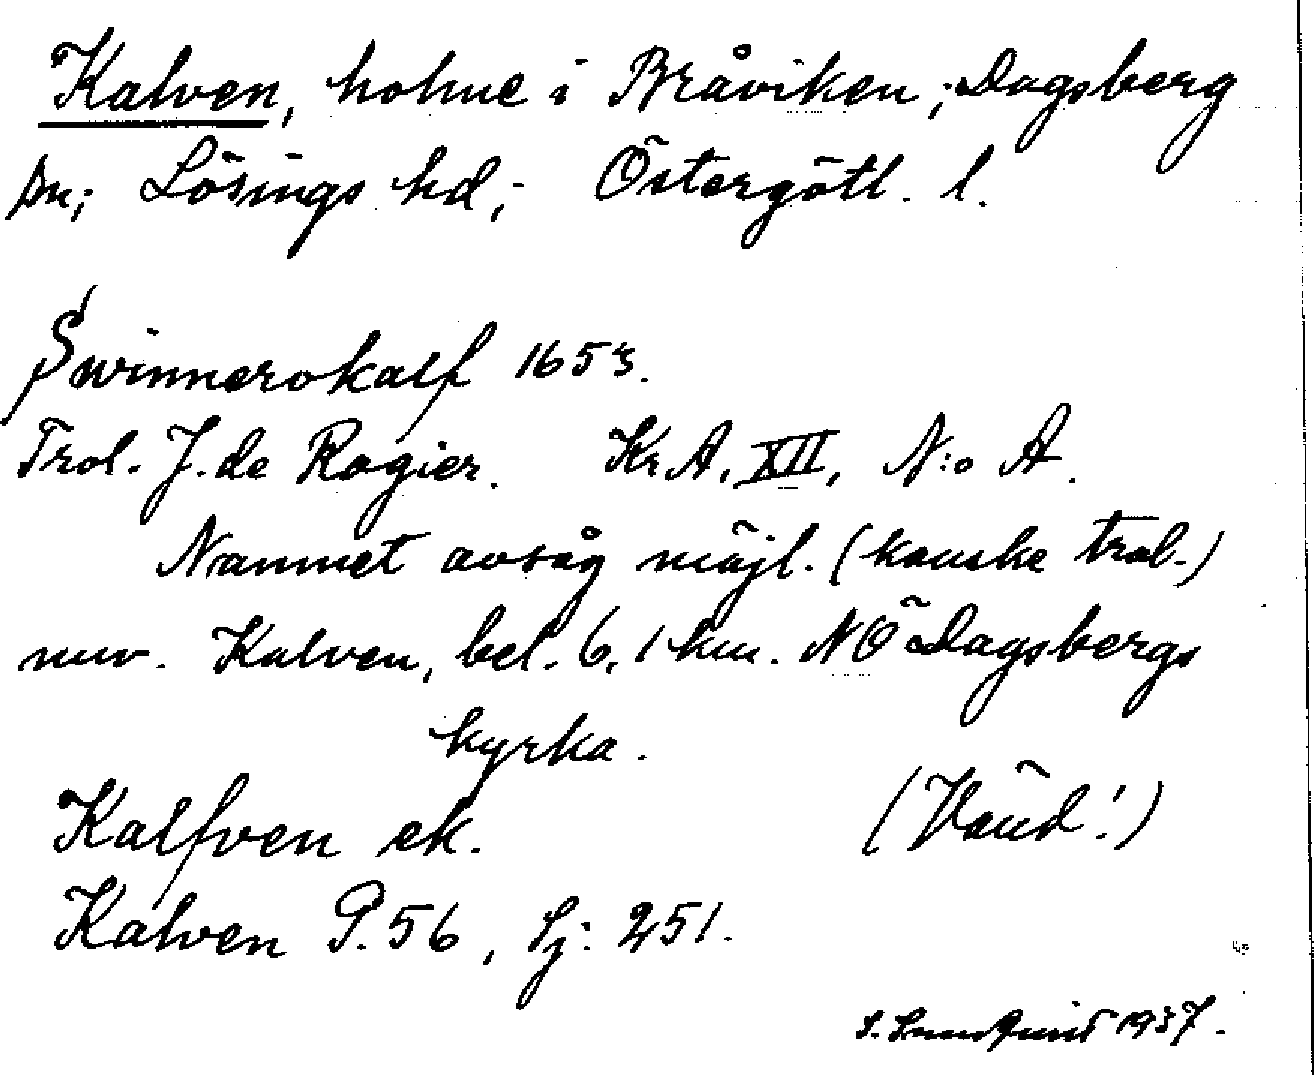 Kalven, holme i Bråviken, Dagsberg
sn; Lösings hd; Östergötl. l.
Swinnerokalf 1653.
Trol. J. de Rogier. KrA, XII, N:o A.
Namnet avsåg möjl. (kanske trol.)
nuv. Kalven, bel. 6,1 km. NÖ Dagsbergs
kyrka.
Kalfven ek. (Vänd!)
Kalven P. 56, Sj: 251.
S. 1937.